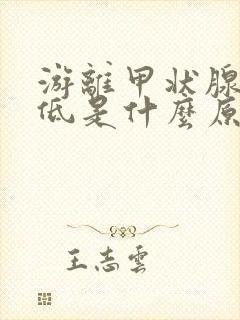 游離甲状腺
低是什麼原
王志雲